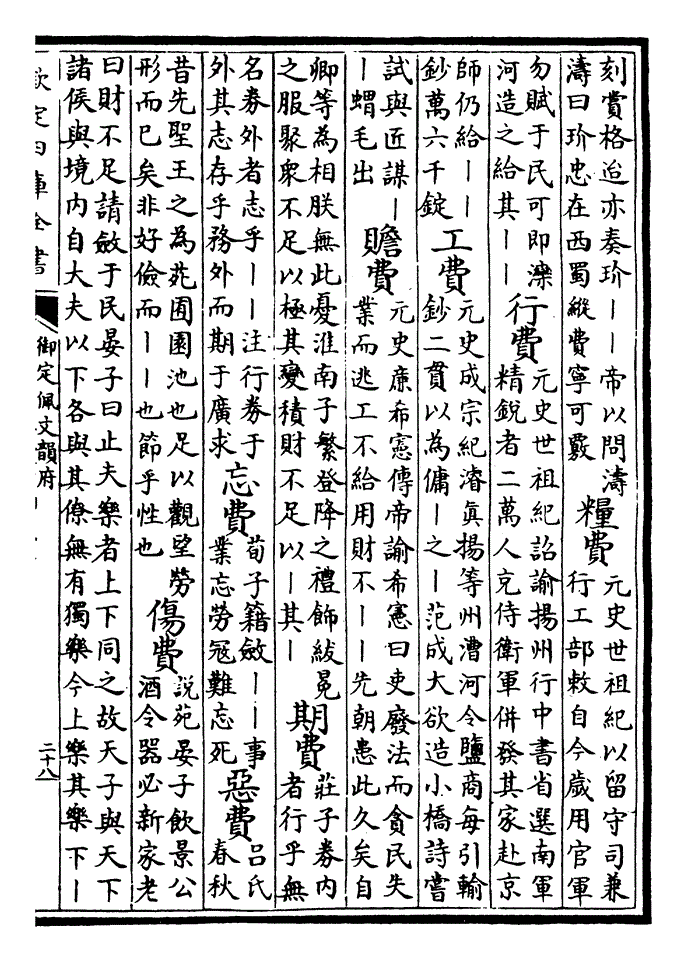 刻賞格迨亦奏玠——帝以問濤
濤曰玠忠在西蜀縱費寧可覈
糧費
元史世祖紀以留守司兼
行工部敕自今歲用官軍
勿賦于民可即灤
河造之給其——
行費
元史世祖紀詔諭揚州行中書省選南軍
精鋭者二萬人充侍衛軍併發其家赴京
師仍給——
鈔萬六千錠
工費
元史成宗紀濬真揚等州漕河令鹽商每引輸
鈔二貫以為傭—之—范成大欲造小橋詩嘗
試與匠謀—
—蝟毛出
贍費
元史廉希憲傳帝諭希憲曰吏廢法而貪民失
業而逃工不給用財不——先朝患此久矣自
卿等為相朕無此憂淮南子繁登降之禮飾紱冕
之服聚衆不足以極其變積財不足以—其—
期費
莊子券内
者行乎無
名券外者志乎——注行券于
外其志存乎務外而期于廣求
忘費
荀子籍斂——事
業忘勞冦難忘死
惡費
吕氏
春秋
昔先聖王之為苑囿園池也足以觀望勞
形而已矣非好儉而——也節乎性也
傷費
説苑晏子飲景公
酒令器必新家老
曰財不足請斂于民晏子曰止夫樂者上下同之故天子與天下
諸侯與境内自大夫以下各與其僚無有獨樂今上樂其樂下—
欽定四庫全書
御定佩文韻府
二十八